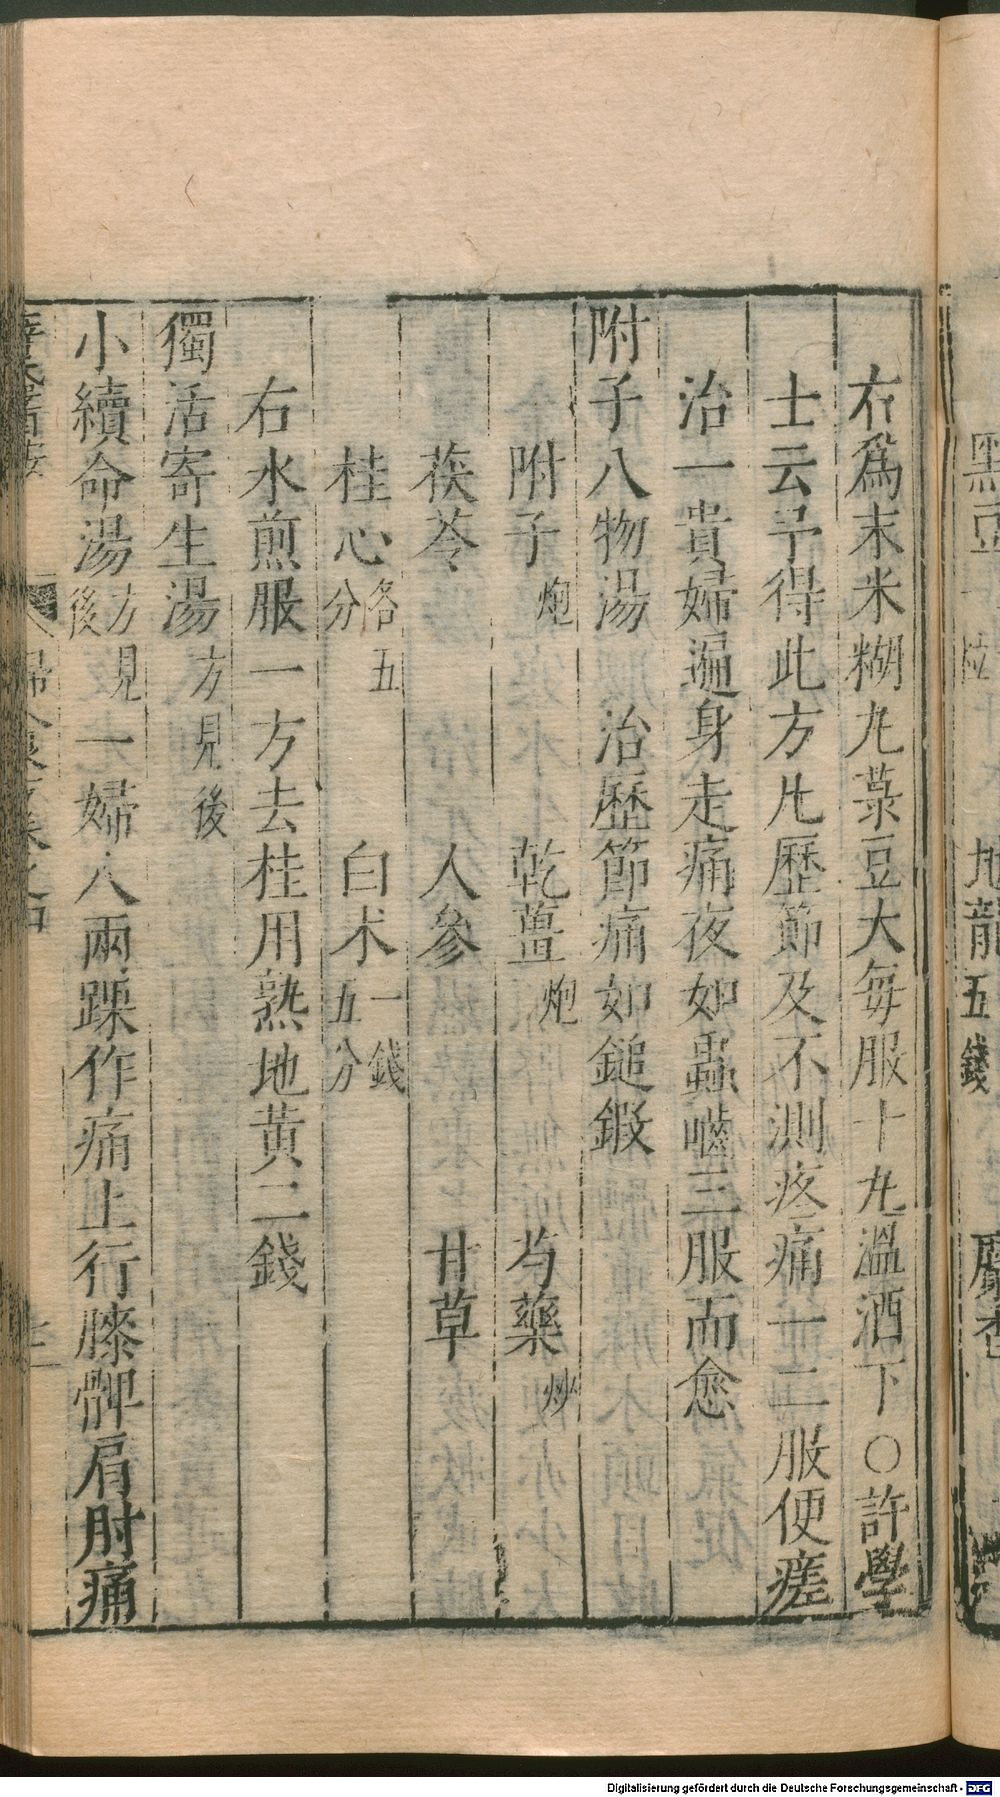 黑豆
地龍五錢
麝香
右爲末米糊丸菉豆大每服十丸溫酒下○許學
士云予得此方凡歷節及不測疼痛一二服便瘥
治一貴婦遍身走痛夜如蟲嚙三服而愈
附子八物湯 治歷節痛如鎚鍛
附子炮 乾薑炮 芍藥炒
茯苓 人參 甘草
桂心各五分 白朮一錢五分
右水煎服一方去桂用熟地黃二錢
獨活寄生湯方見後
小續命湯方見後 一婦人兩踝作痛上行膝髀肩肘痛
Digitalisierung gefördert durch die Deutsche Forschungsgemeinschaft - DFG